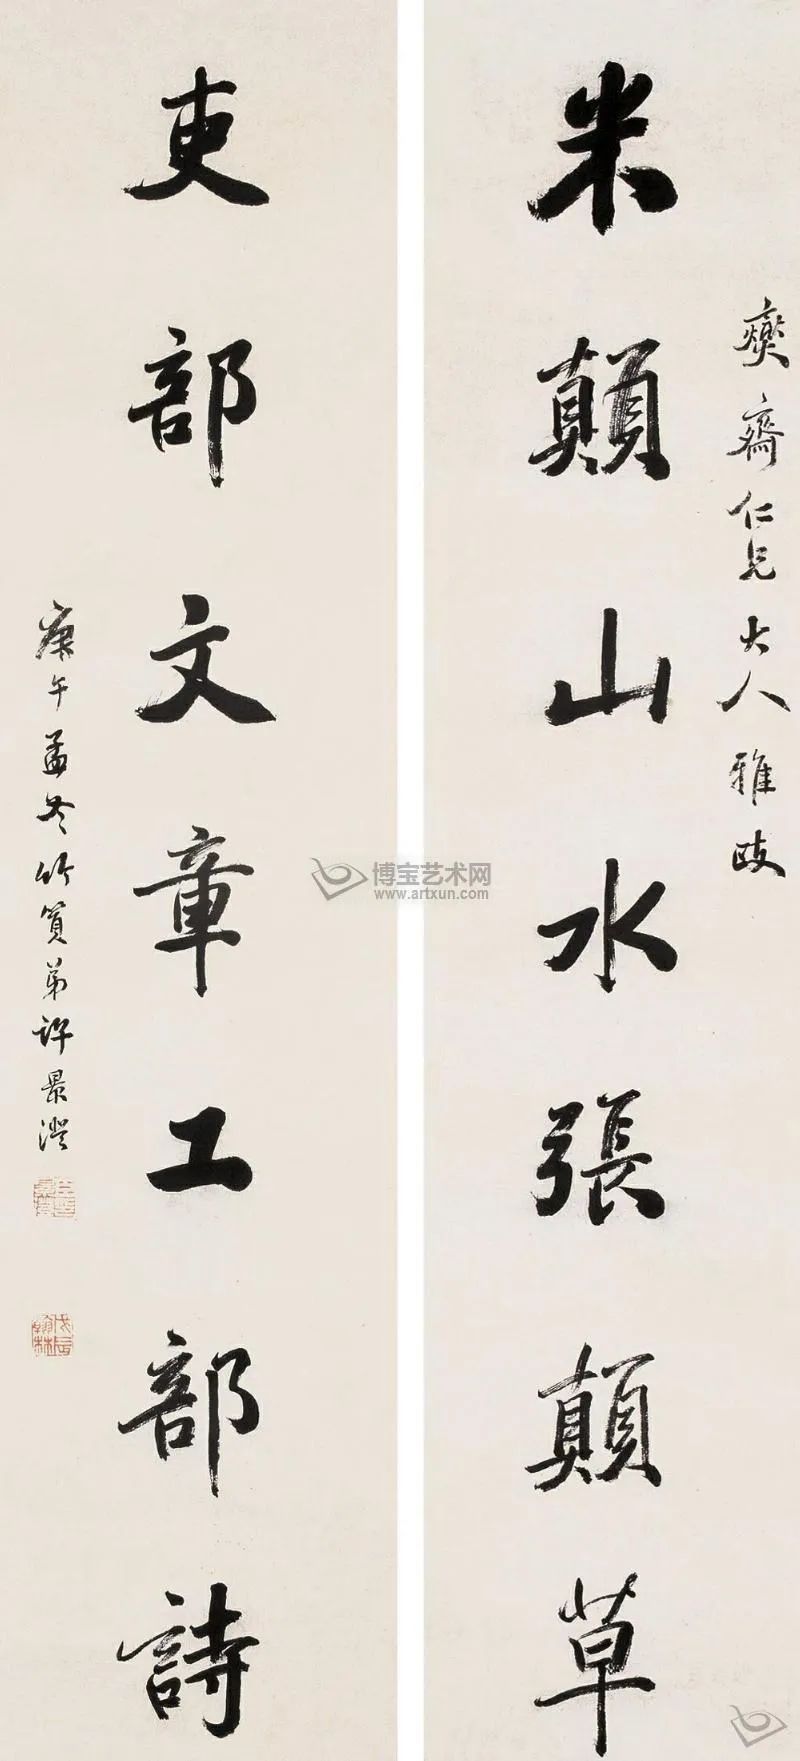 米顛山水張顛草
燮齋仁兄大人雅政
吏部文章工部詩
庚午孟冬竹篔弟許景澄
戊辰翰林
博宝艺术网
www.artxun.com